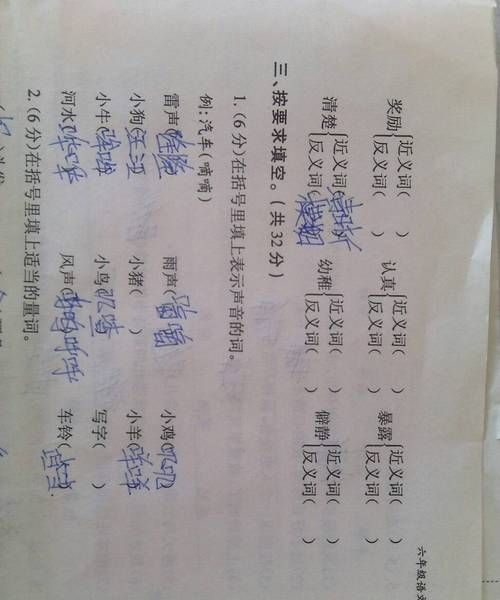 六年级语文
奖励{近义词(    ) 反义词(    )  认真{近义词(    ) 反义词(    )  暴露{近义词(    ) 反义词(    )
清楚{近义词(清晰) 反义词(模糊)  幼稚{近义词(    ) 反义词(    )  僻静{近义词(    ) 反义词(    )
三、按要求填空。(共32分)
1. (6分)在括号里填上表示声音的词。
例:汽车(嘀嘀)
雷声(隆隆)  雨声()  小鸡(叽叽)
小狗(汪汪)  小猪(    )  小羊(咩咩)
小牛()  小鸟()  写字(    )
河水(哗哗)  风声(呼呼)  车铃()
2. (6分)在括号里填上适当的量词。